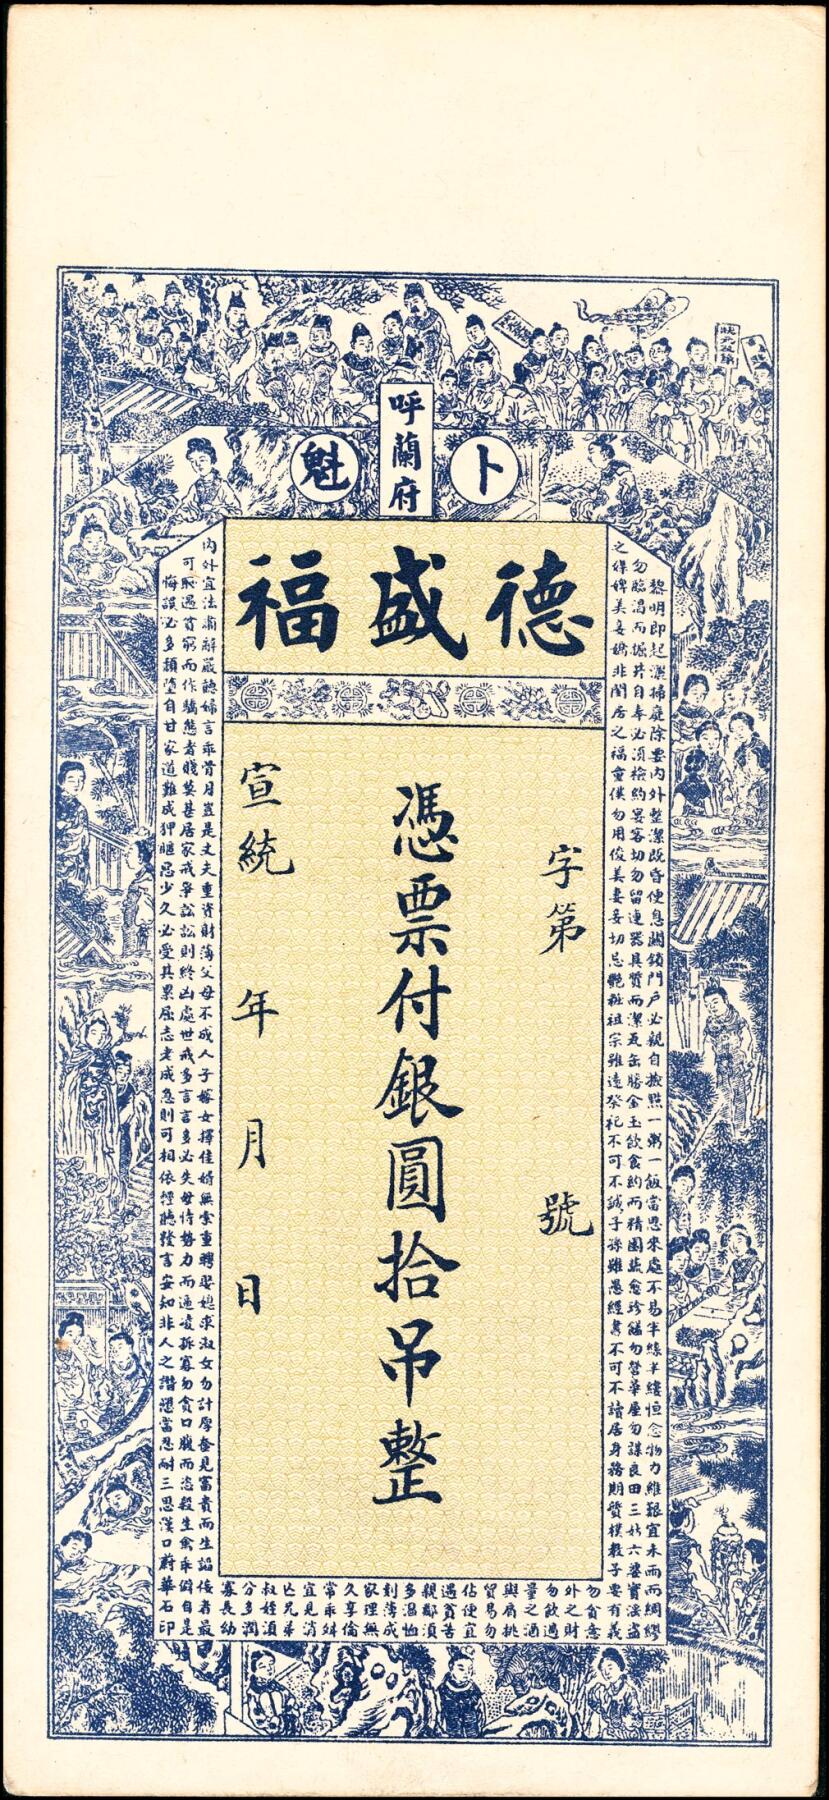 狀元及第
呼蘭府
卜魁
德盛福
字第 號
憑票付銀圓拾吊整
宣統 年 月 日
黎明即起洒掃庭除要內外整潔既昏便息關鎖門戶必親自撿點一粥一飯當思來處不易半絲半縷恒念物力維艱宜未雨而綢繆
勿臨渴而掘井自奉必須檢約宴客切勿留連器具質而潔瓦缶勝金玉飲食約而精園蔬愈珍饈勿營華屋勿謀良田三姑六婆實淫盜
之媒婢美妾嬌非閨房之福童僕勿用俊美妻妾切忌艷粧祖宗雖遠祭祀不可不誠子孫雖愚經書不可不讀居身務期質樸教子要有義
勿貪意
外之財
勿飲過
量之酒
與肩挑
貿易勿
佔便宜
遇貧苦
親鄰須
多溫恤
刻薄成
家理無
久享倫
常乖舛
宜見消
亡兄弟
叔姪須
分多潤
寡長幼
內外宜法肅辭嚴聽婦言乖骨月豈是丈夫重資財薄父母不成人子嫁女擇佳婿無索重聘娶媳求淑女勿計厚奩見富貴而生諂侫者最
可恥遇貧窮而作驕態者賤莫甚居家戒爭訟訟則終凶處世戒多言言多必失毋恃勢力而逼凌孤寡勿貪口腹而恣殺生禽乖僻自是
悔誤必多頹墮自甘家道難成狎暱惡少久必受其累屈志老成急則可相依輕聽發言安知非人之譖愬當忍耐三思漢口蔚華石印